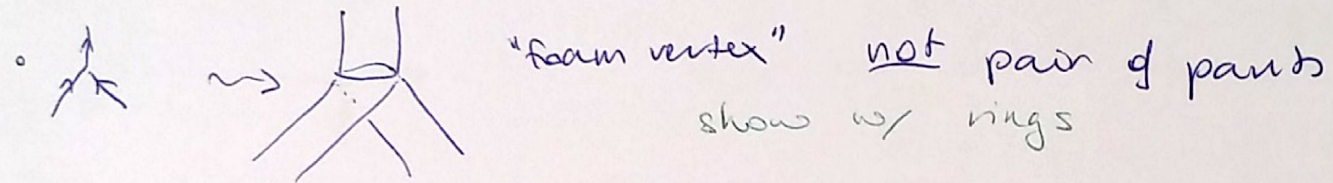 "foam vertex" not pair of pants
show w/ rings